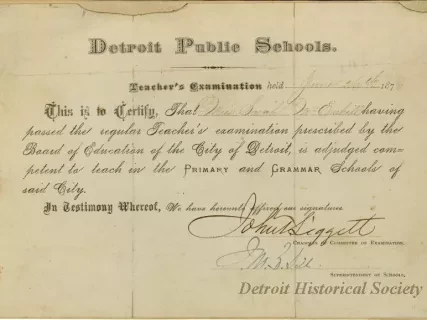 Detroit Public Schools.
Teacher's Examination held June 26th 187
This is to Certify, That Miss Sarah having
passed the regular Teacher's examination prescribed by the
Board of Education of the City of Detroit, is adjudged com-
petent to teach in the Primary and Grammar Schools of
said City.
In Testimony Whereof, We have hereunto affixed our signatures
John Liggett
Chairman of Committee of Examination.
J.M.B. Sill
Superintendent of Schools.
Detroit Historical Society